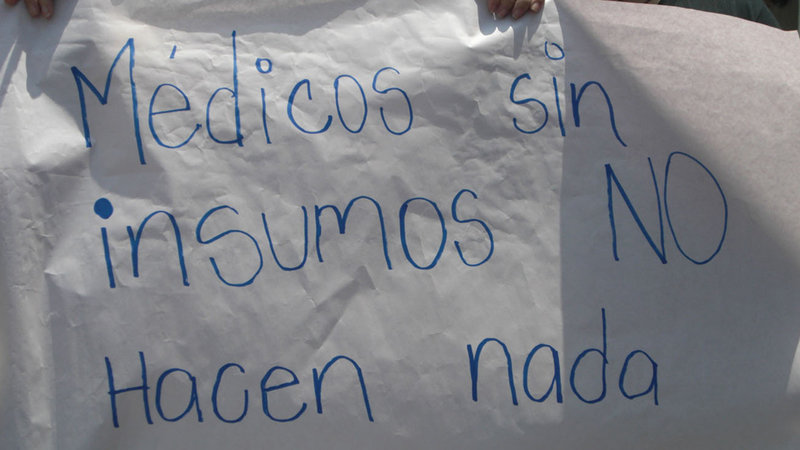 Médicos sin
insumos NO
Hacen nada